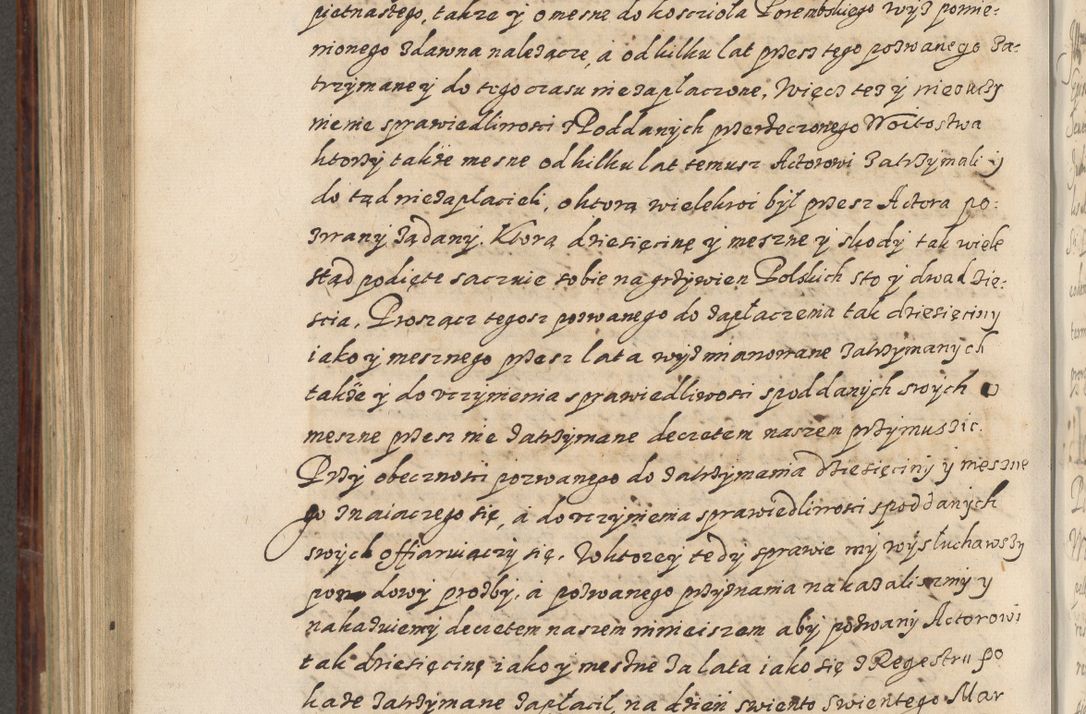 pietnastego, także y o mesne do kosciola Porembskiego wyż pomie:
nionego zdawna należące, a od kilku lat przesz tego pozwanego za:
trzymane y do tego czasu nie zaplaczone, Więcz też y nieuczy
nienie sprawiedliwosci z Poddanych przerzeczonego Woitostwa
ktorzy także mesne od kilku lat temusz Actorowi zatrzymali y
do tąd nie zaplacieli, o ktorą wielekroć był przesz Actora po:
zwany żądany. Ktorą dziesięcinę y meszne y skody tak wiele
stąd podięte sacuie sobie na grzywien Polskich sto y dwadzie:
scia, Proszącz tegosz pozwanego do zapłaczenia tak dziesięciny
iako y mesznego przesz lata wyż mianowane zatrzymanych
także y do uczynienia sprawiedliwosci s poddanych swych o
meszne przesz nie zatrzymane decretem naszem przymuszic.
Przy obecznosci pozwanego do zatrzymania dziesięciny y meszne
go znaiaczego się, a do uczynienia sprawiedliwosci s poddanych
swych offiaruiączy się. W ktorey tedy sprawie my wysłuchawszy
powodowy prożby, a pozwanego przyznania nakazalismy y
nakazuiemy decretem naszem ninieiszem aby pozwany Actorowi
tak dziesięcinę iako y meszne za lata iako się z Regestru po
każe zatrzymane zapłacił, na dzień swiento Swientego Mar